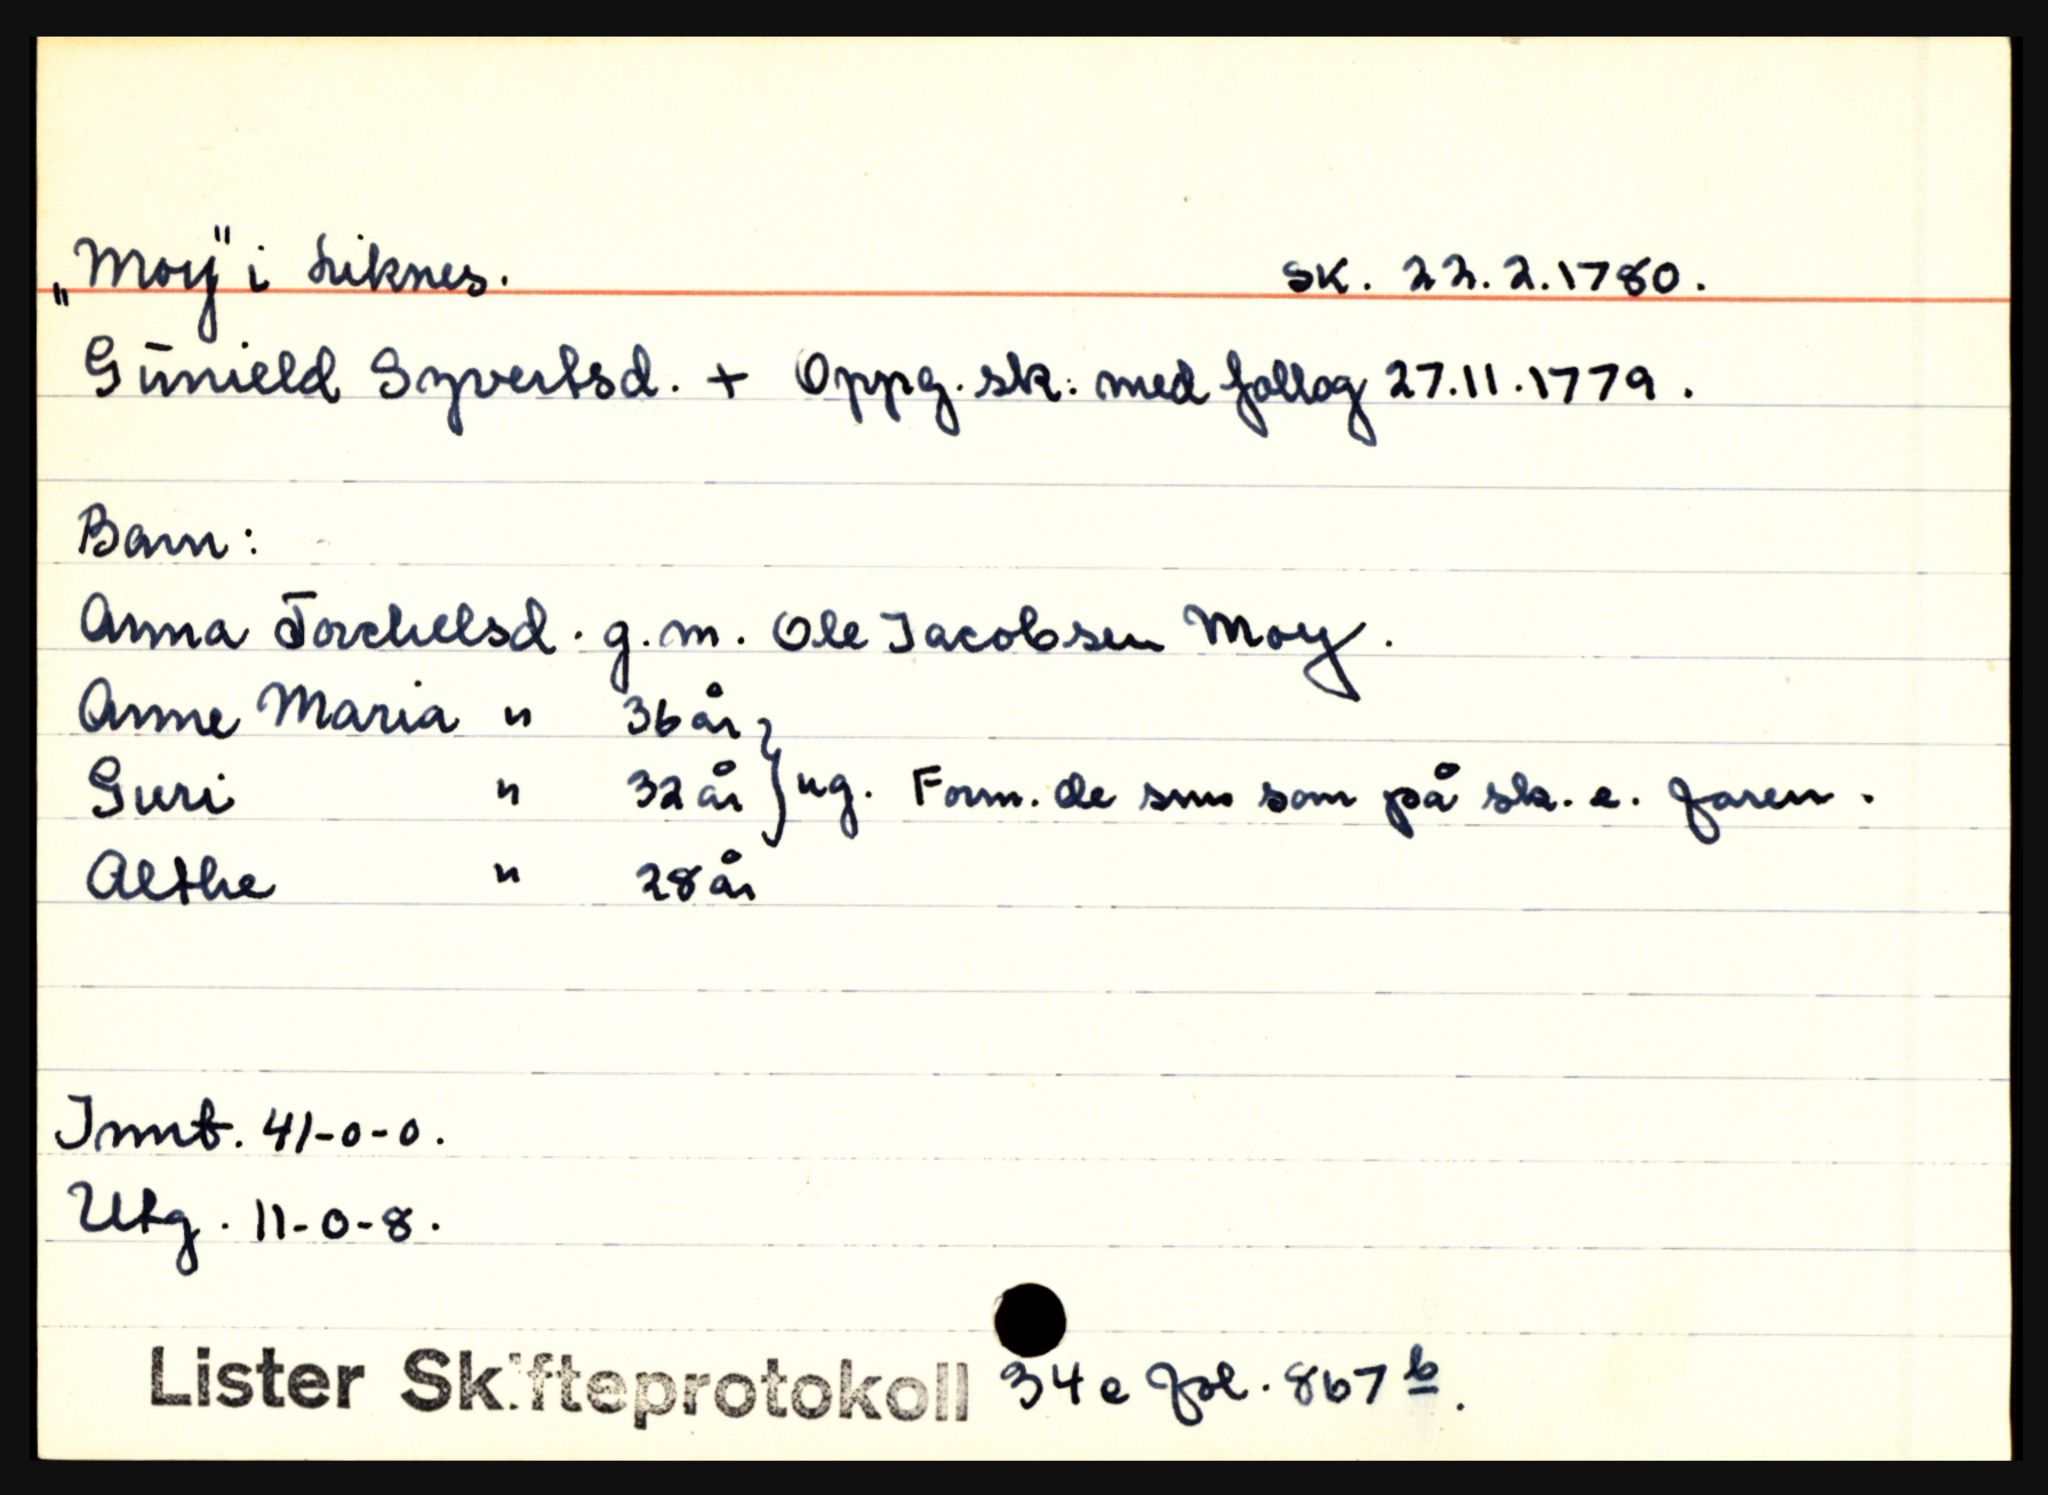 „Moy" i Liknes. Sk. 22.2.1780.
Gūnield Syvertsd. + Oppg. sk. med fallog 27.11.1779.
Barn:
Anna Torchelsd. g.m. Ole Jacobsen Moy.
Anne Maria " 36 år
Guri " 32 år } ug. Form. de sms som på sk. e. faren.
Althe " 28 år
Innt. 41-0-0.
Utg. 11-0-8.
Lister Skifteprotokoll 34 e fol. 867 b.